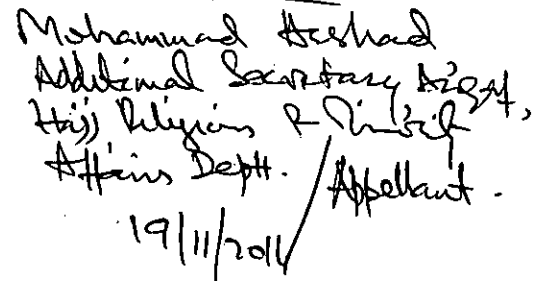 Mohammad Arshad
Additional Secretary Auqaf,
Hajj Religious & Minority
Affairs Deptt. / Appellant.
19/11/201